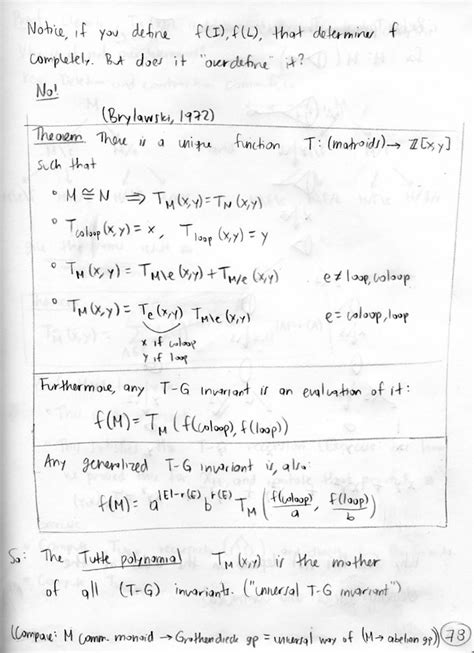 Notice, if you define f(I), f(L), that determines f
completely. But does it "overdefine" it?
No!
(Brylawski, 1972)
Theorem There is a unique function T: (matroids) → ℤ[x,y]
such that
• M ≅ N ⟹ T_M(x,y) = T_N(x,y)
• T_coloop(x,y) = x, T_loop(x,y) = y
• T_M(x,y) = T_M\e(x,y) + T_M/e(x,y) e ≠ loop, coloop
• T_M(x,y) = T_e(x,y) T_M\e(x,y) e = coloop, loop
x if coloop
y if loop
Furthermore, any T-G invariant is an evaluation of it:
f(M) = T_M(f(coloop), f(loop))
Any generalized T-G invariant is, also:
f(M) = a^{|E|-r(E)} b^{r(E)} T_M(f(coloop)/a, f(loop)/b)
So: The Tutte polynomial T_M(x,y) is the mother
of all (T-G) invariants. ("universal T-G invariant")
(Compare: M comm. monoid → Grothendieck gp = universal way of (M → abelian gp)) 73